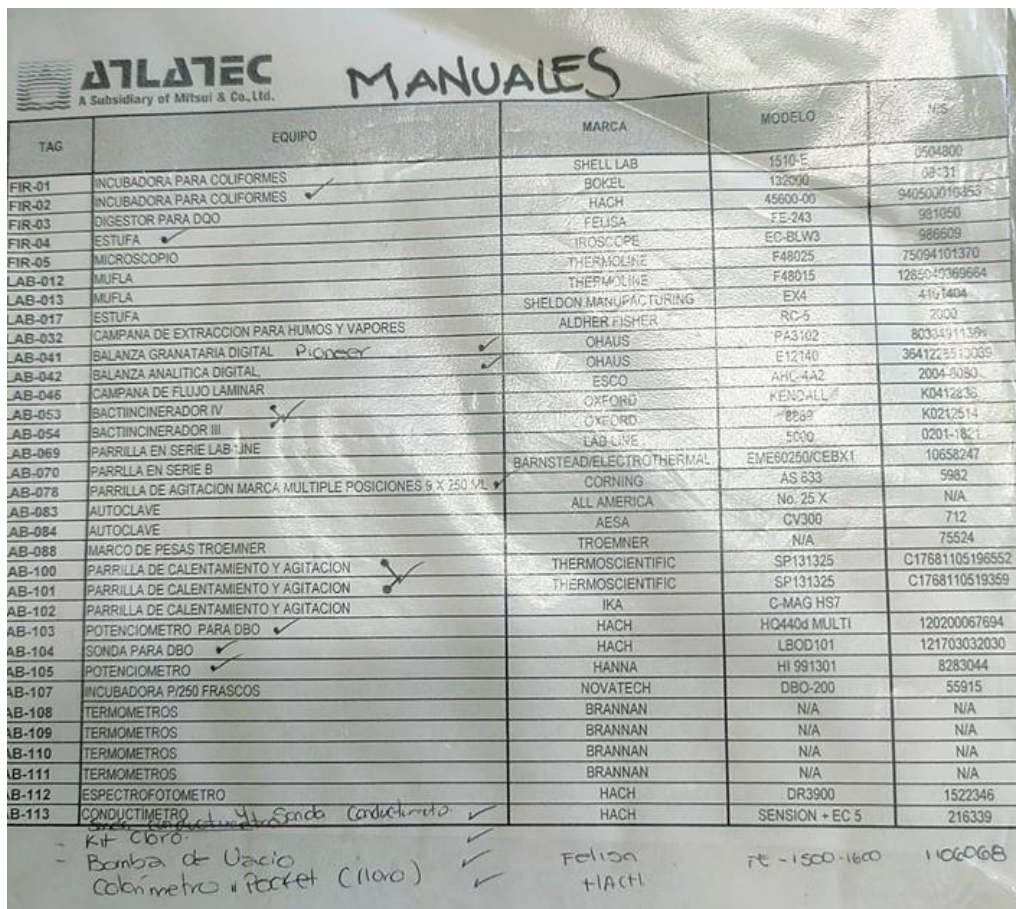 ATLATEC
A Subsidiary of Mitsui & Co., Ltd.
MANUALES
TAG EQUIPO MARCA MODELO N/S
FIR-01 INCUBADORA PARA COLIFORMES SHELL LAB 1510-E 0504800
FIR-02 INCUBADORA PARA COLIFORMES BOKEL 132000
FIR-03 DIGESTOR PARA DQO HACH 45600-00
FIR-04 ESTUFA FELISA FE-243
FIR-05 MICROSCOPIO IROSCOPE EC-BLW3 986609
LAB-012 MUFLA THERMOLINE F48025 75094101370
LAB-013 MUFLA THERMOLINE F48015
LAB-017 ESTUFA SHELDON MANUFACTURING EX4
LAB-032 CAMPANA DE EXTRACCION PARA HUMOS Y VAPORES ALDHER FISHER RC-5 2000
LAB-041 BALANZA GRANATARIA DIGITAL Pioneer OHAUS PA3102
LAB-042 BALANZA ANALITICA DIGITAL, OHAUS E12140
LAB-046 CAMPANA DE FLUJO LAMINAR ESCO AHC-4A2
AB-053 BACTIINCINERADOR IV OXFORD KENDALL
AB-054 BACTIINCINERADOR III OXFORD K0212514
AB-069 PARRILLA EN SERIE LAB LINE LAB LINE 5000
AB-070 PARRLLA EN SERIE B BARNSTEAD/ELECTROTHERMAL EME60250/CEBX1 10658247
AB-078 PARRILLA DE AGITACION MARCA MULTIPLE POSICIONES 9 X 250 ML CORNING AS 633 5982
AB-083 AUTOCLAVE ALL AMERICA No. 25 X N/A
AB-084 AUTOCLAVE AESA CV300 712
AB-088 MARCO DE PESAS TROEMNER TROEMNER N/A 75524
AB-100 PARRILLA DE CALENTAMIENTO Y AGITACION THERMOSCIENTIFIC SP131325 C17681105196552
AB-101 PARRILLA DE CALENTAMIENTO Y AGITACION THERMOSCIENTIFIC SP131325 C1768110519359
AB-102 PARRILLA DE CALENTAMIENTO Y AGITACION IKA C-MAG HS7
AB-103 POTENCIOMETRO PARA DBO HACH HQ440d MULTI 120200067694
AB-104 SONDA PARA DBO HACH LBOD101 121703032030
AB-105 POTENCIOMETRO HANNA HI 991301 8283044
AB-107 INCUBADORA P/250 FRASCOS NOVATECH DBO-200 55915
AB-108 TERMOMETROS BRANNAN N/A N/A
AB-109 TERMOMETROS BRANNAN N/A N/A
AB-110 TERMOMETROS BRANNAN N/A N/A
AB-111 TERMOMETROS BRANNAN N/A N/A
AB-112 ESPECTROFOTOMETRO HACH DR3900 1522346
AB-113 CONDUCTÍMETRO y Sonda HACH SENSION + EC 5 216339
- Kit Cloro
- Bomba de Vacio Felisa Fe-1500-1600 1106068
Colorimetro Pocket (Cloro) HACH